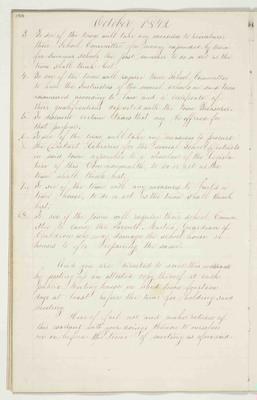 October, 1842
3. To see if the town will take any measures to
their School Committee for money expended by them
for Summer Schools the past summer or to act as the
town shall think best.
4. To see if the town will require their School Committee
to have the Instructors of the several schools in said town
examined according to law and a certificate of
their qualifications deposited with the town Treasurer.
5. To discuss certain claims that may be offered for
that purpose.
6. To see if the town will take any measures to procure
the District Libraries for the several School Districts
in said town agreeable to a resolve of the Legisla-
ture of this Commonwealth, or to act as the
town shall think best.
7. To see if the town will take any measures to build a
town house, to do or act as the town shall think
best.
8. To see if the town will require their School Commit-
tee to cause the Parents, Masters, Guardians of
Children who may damage the school house or
houses to pay repairing the same.
And you are directed to serve this
by posting up an attested copy thereof at each
Public Meeting house in said town fourteen
days at least before the time for holding said
meeting.
Hereof fail not and make return of
this warrant with your doings thereon to ourselves
on or before the time of meeting as aforesaid.